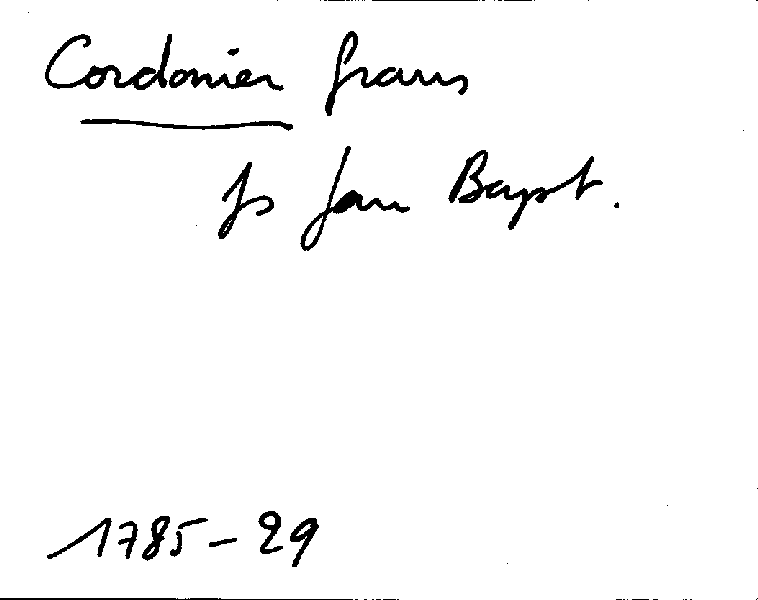 Cordonier frans
fs Jan Bapt.
1785-29